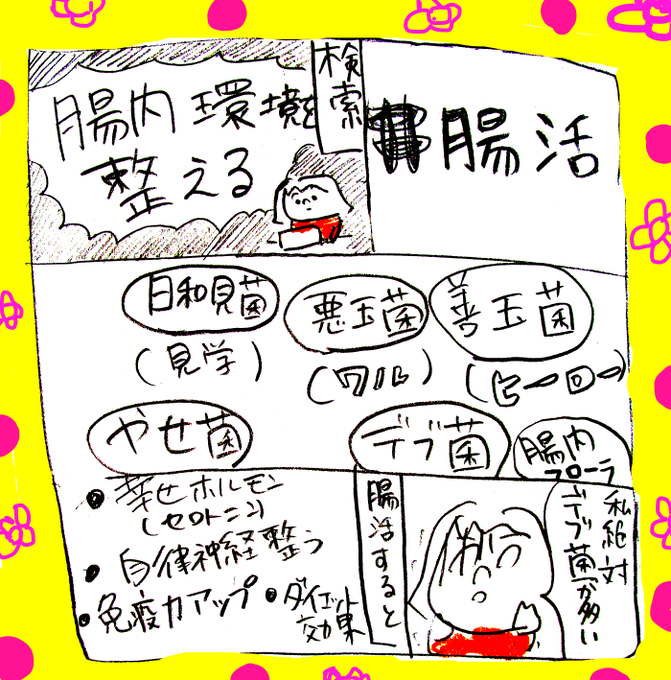 腸活
検索
腸内環境を
整える
善玉菌
(ヒーロー)
悪玉菌
(ワル)
日和見菌
(見学)
腸内
フローラ
デブ菌
やせ菌
私絶対
デブ菌が多い
腸活すると
• 幸せホルモン
(セロトニン)
• 自律神経整う
• 免疫力アップ
• ダイエット
効果